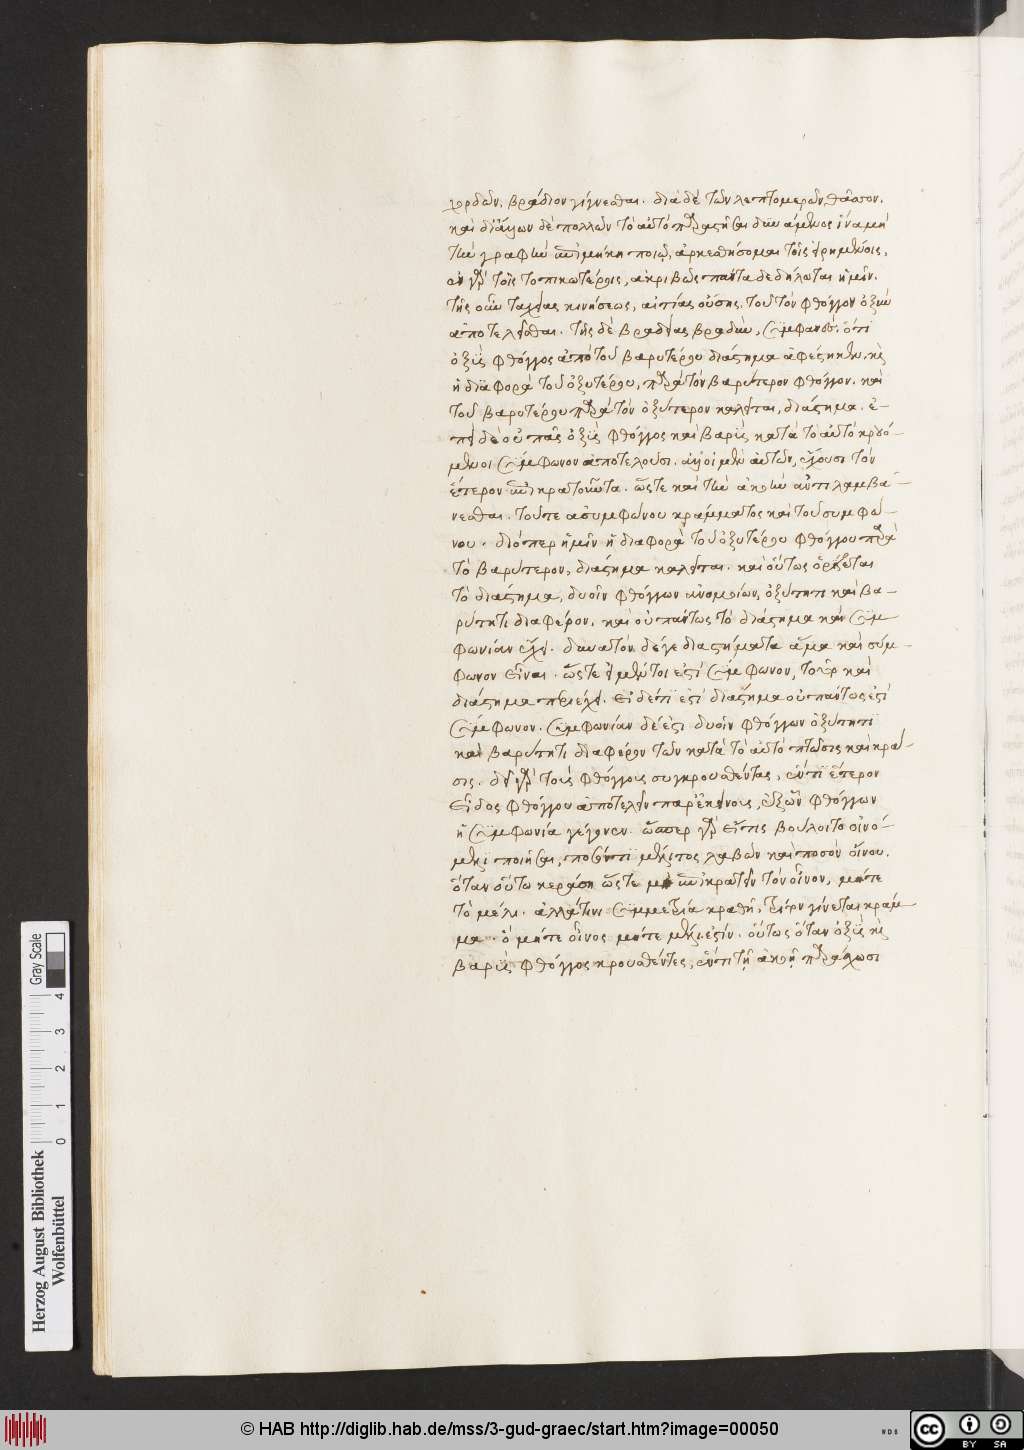 χορδῶν, βράδιον γίγνεσθαι. διὰ δὲ τῶν λεπτομερῶν, θᾶσσον.
καὶ δι' ἄλλων δὲ πολλῶν τὸ αὐτὸ παραστῆσαι δυνάμενος ἵνα μὴ
τὴν γραφὴν ἐπιμήκη ποιῶ, ἀρκεσθήσομαι τοῖς εἰρημένοις,
ἐν γὰρ τοῖς τοπικωτέροις, ἀκριβῶς πάντα δεδήλωται ἡμῖν.
τῆς οὖν ταχείας κινήσεως, αἰτίας οὔσης, τοῦ τὸν φθόγγον ὀξὺν
ἀποτελεῖσθαι. τῆς δὲ βραδείας βραδὺν, συμφανὲς, ὅτι
ὀξὺς φθόγγος ἀπὸ τοῦ βαρυτέρου διάστημα ἀφέστηκεν, καὶ
ἡ διαφορὰ τοῦ ὀξυτέρου, παρὰ τὸν βαρύτερον φθόγγον. καὶ
τοῦ βαρυτέρου παρὰ τὸν ὀξύτερον καλεῖται, διάστημα. ἐ-
πεὶ δὲ οὐ πᾶς ὀξὺς φθόγγος καὶ βαρὺς κατὰ τὸ αὐτὸ κρουό-
μενοι σύμφωνον ἀποτελοῦσι. ἀλλ' οἱ μὲν αὐτῶν, ἔχουσι τὸν
ἕτερον ἐπικρατοῦντα. ὥστε καὶ τὴν ἀκοὴν ἀντιλαμβά-
νεσθαι. τοῦ τε ἀσυμφώνου κράμματος καὶ τοῦ συμφώ-
νου. διόπερ ἡμῖν ἡ διαφορὰ τοῦ ὀξυτέρου φθόγγου παρὰ
τὸ βαρύτερον, διάστημα καλεῖται. καὶ οὕτως ὁρίζεται
τὸ διάστημα, δυοῖν φθόγγων ἀνομοίων, ὀξύτητι καὶ βα-
ρύτητι διαφέρον. καὶ οὐ πάντως τὸ διάστημα κἂν συμ-
φωνίαν ἔχει. δυνατὸν δέ γε διαστήματα ἅμα καὶ σύμ-
φωνον εἶναι. ὥστε εἰ μέν τοι ἐστὶ σύμφωνον, τοῦτο καὶ
διάστημα περιέχει. εἰ δέ τι ἐστὶ διάστημα οὐ πάντως ἐστὶ
σύμφωνον. συμφωνίαν δέ ἐστι δυοῖν φθόγγων ὀξύτητι
καὶ βαρύτητι διαφέρου τῶν κατὰ τὸ αὐτὸ πτῶσις καὶ κρᾶ-
σις. δεῖ γὰρ τοὺς φθόγγους συγκρουσθέντας, ἕν τι ἕτερον
εἶδος φθόγγου ἀποτελεῖν παρ' ἐκείνους, ἐξ ὧν φθόγγων
ἡ συμφωνία γέγονεν. ὥσπερ γὰρ εἴ τις βούλοιτο οἰνό-
μελι ποιῆσαι, ποσόν τι μέλιτος λαβὼν καὶ ποσὸν οἴνου.
ὅταν οὕτω κεράσῃ ὥστε μὴ ἐπικρατεῖν τὸν οἶνον, μήτε
τὸ μέλι. ἀλλὰ τινι συμμετρία κραθῇ, τρίτον γίνεται κράμ-
μα. ὃ μήτε οἶνος μήτε μέλι ἐστίν. οὕτως ὅταν ὀξὺς καὶ
βαρὺς φθόγγος κρουσθέντες, ἕν τι τῇ ἀκοῇ παράσχωσι
Herzog August Bibliothek
Wolfenbüttel
0 1 2 3 4
Gray Scale
© HAB http://diglib.hab.de/mss/3-gud-graec/start.htm?image=00050
cc BY SA